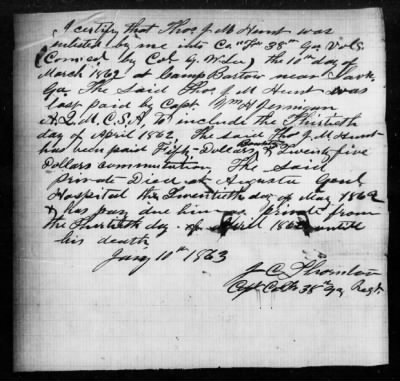 I certify that Thos. J. M. Hunt was
enlisted by me into Co. "F" 38th Ga. Vols
(Comd. by Col. G. ) the 10th day of
March 1862 at Camp Bartow near Savh.
Ga. The Said Thos. J. M. Hunt was
last paid by Capt. Wm H Jernigan
A.Q.M. C.S.A. to include the Thirtieth
day of April 1862. The said Thos J. M. Hunt
has been paid Fifty Dollars Bounty & Twenty five
Dollars commutation. The Said
Private Died at Augusta Genl.
Hospital the Twentieth day of May 1862
& has pay due him as private from
the Thirtieth day of April 1862 until
his death
Jany 10th 1863
J C Thornton
Capt Co. 38th Ga Regt.